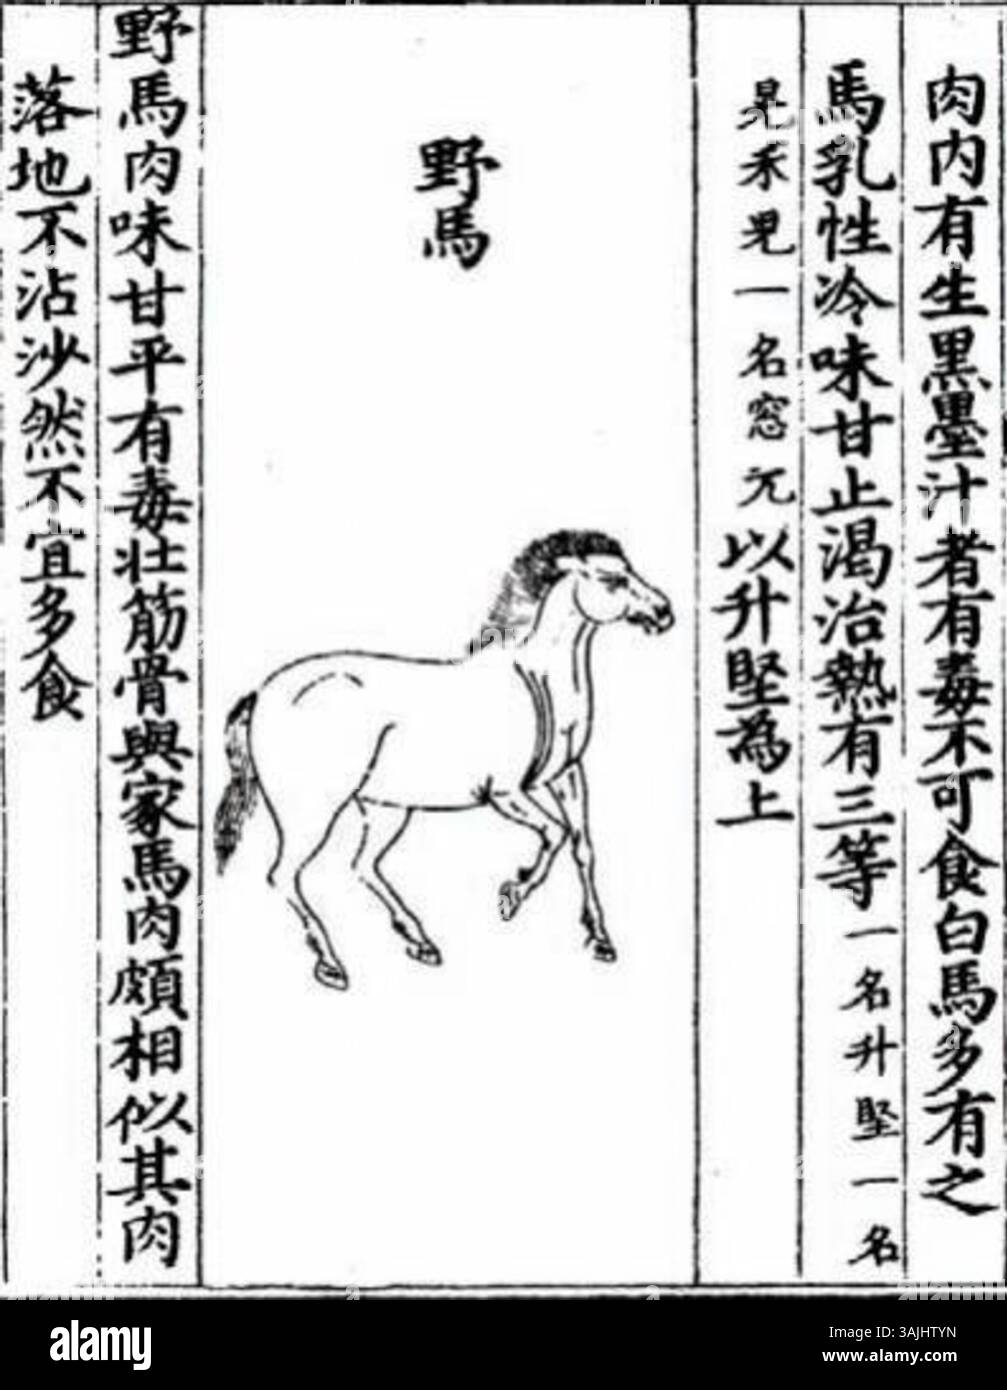 肉内有生黑墨汁者有毒不可食白馬多有之
馬乳性冷味甘止渴治熱有三等一名升堅一名
晃禾兒一名窓兀以升堅為上
野馬
野馬肉味甘平有毒壯筋骨與家馬肉頗相似其肉
落地不沾沙然不宜多食
alamy
Image ID: 3AJHTYN
www.alamy.com